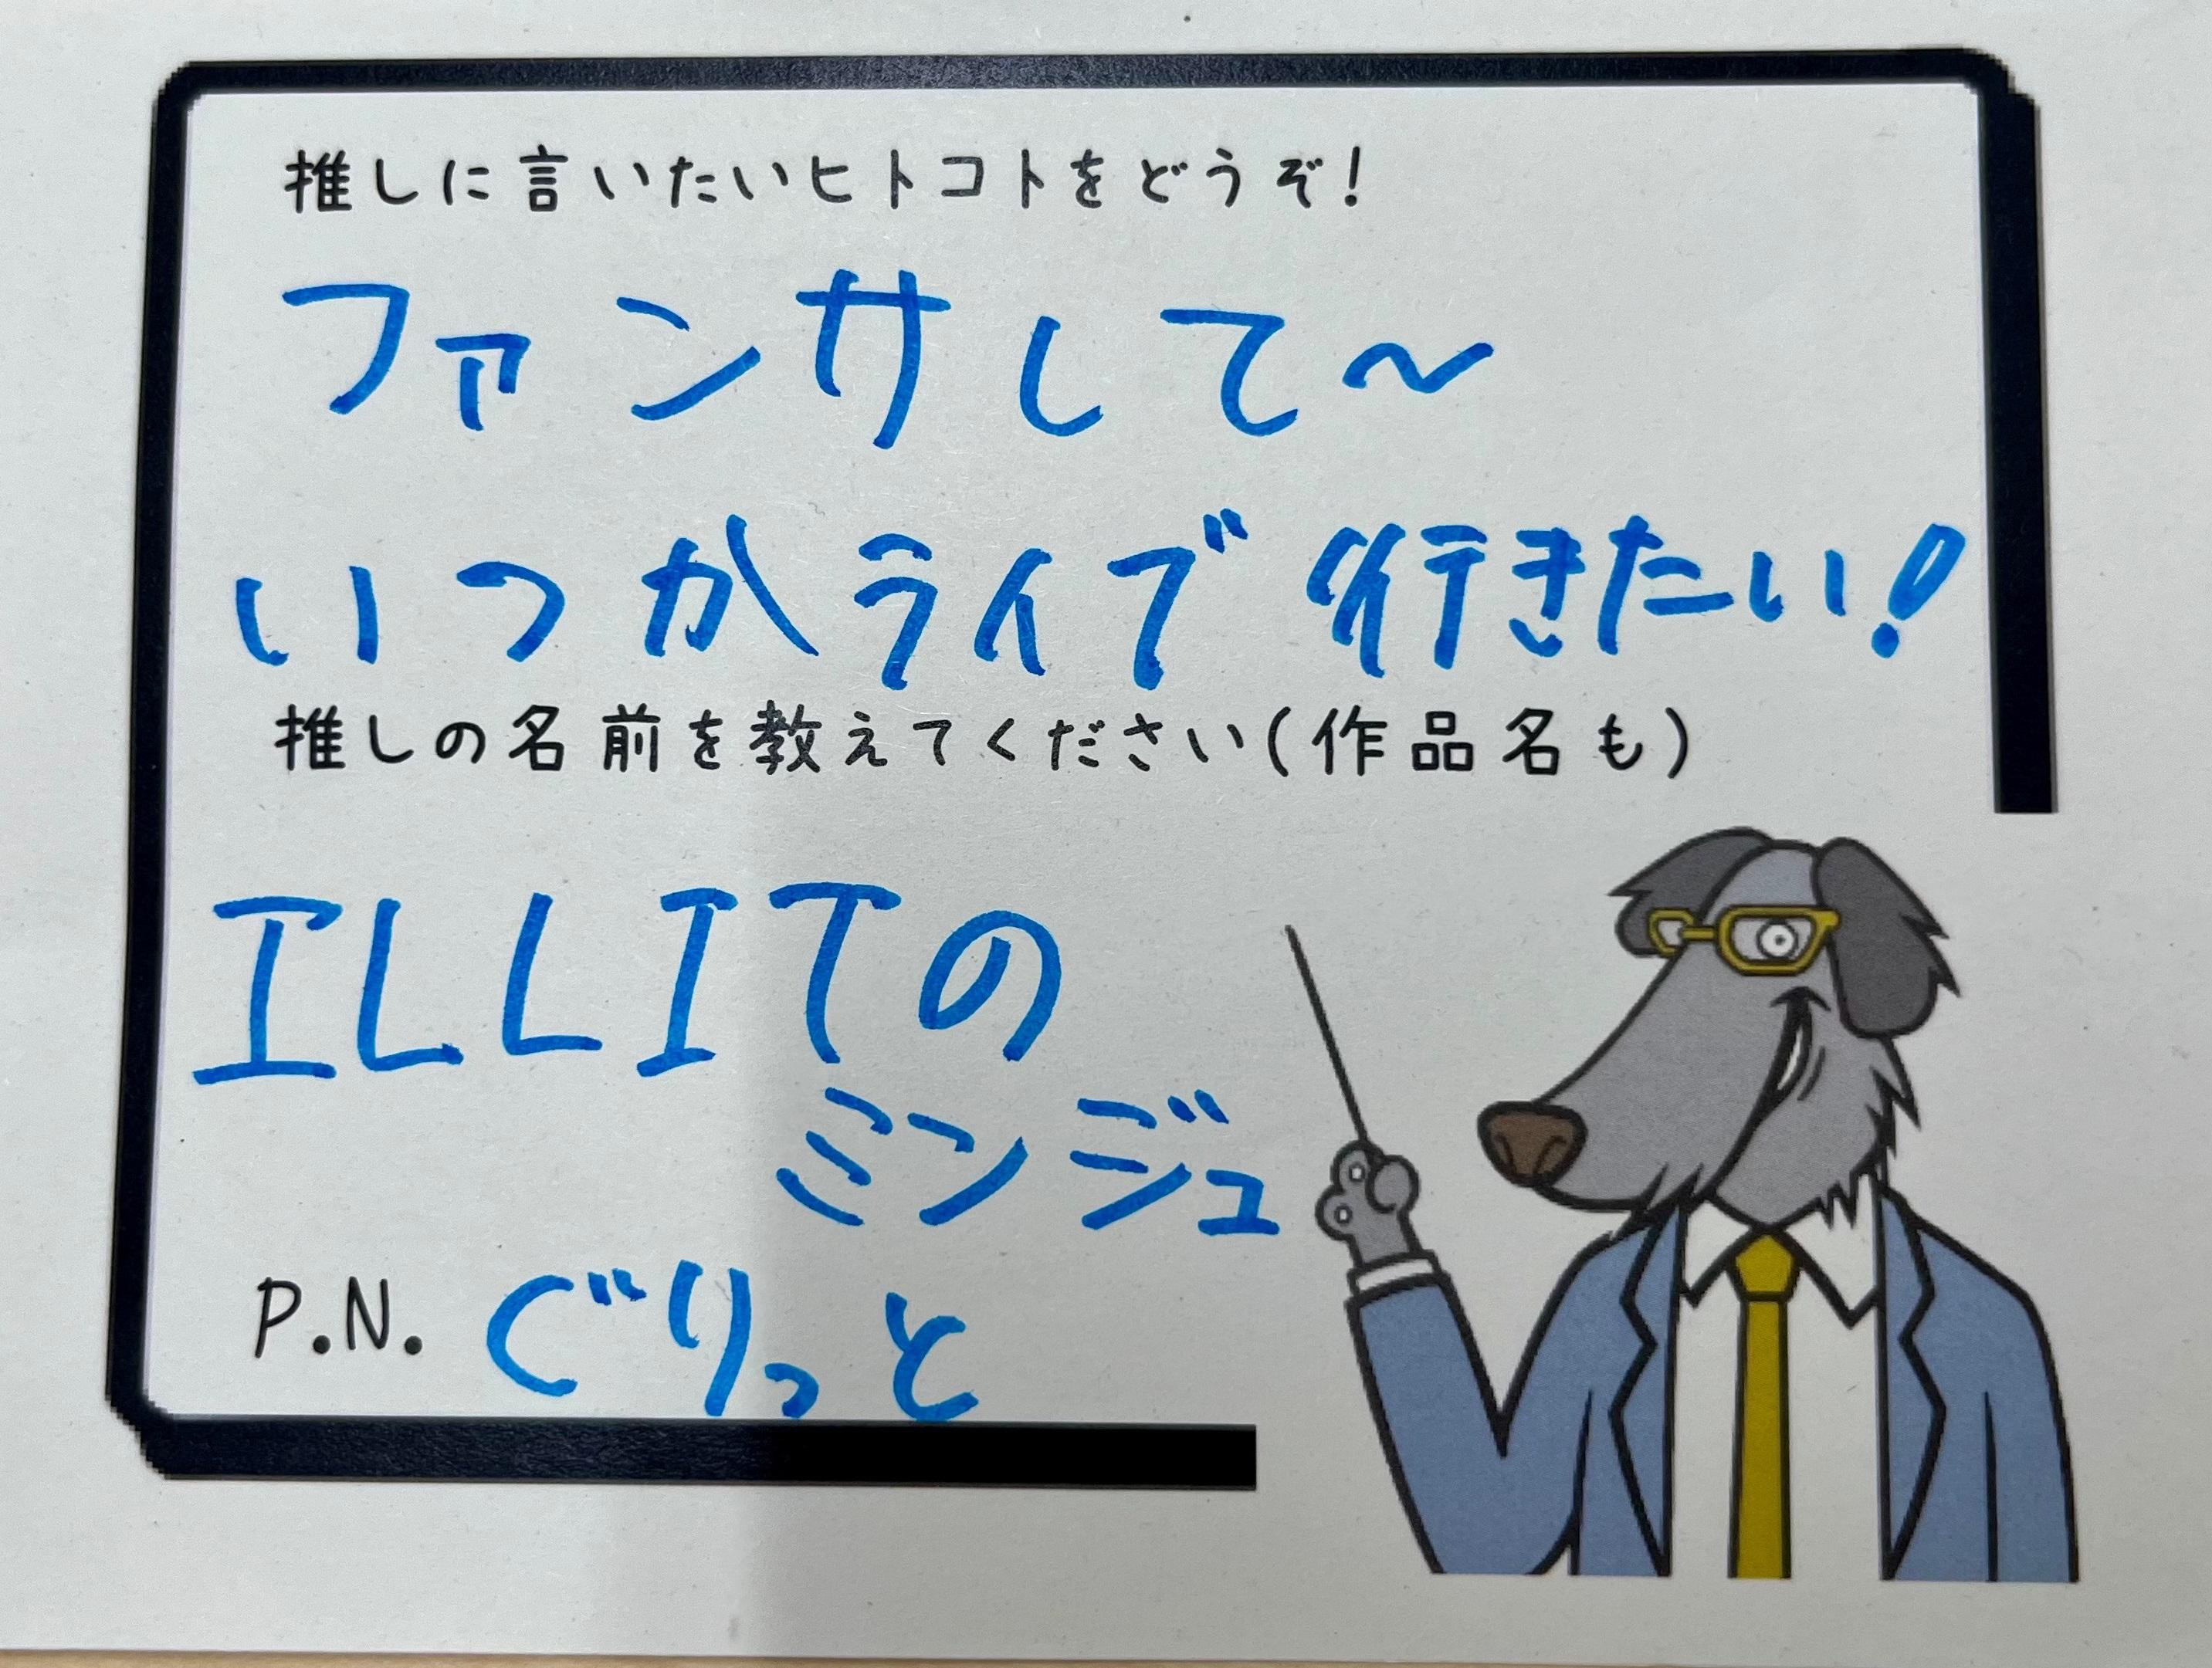 推しに言いたいヒトコトをどうぞ!
ファンサして~
いつかライブ行きたい!
推しの名前を教えてください(作品名も)
ILLITの
ミンジュ
P.N. ぐりっと